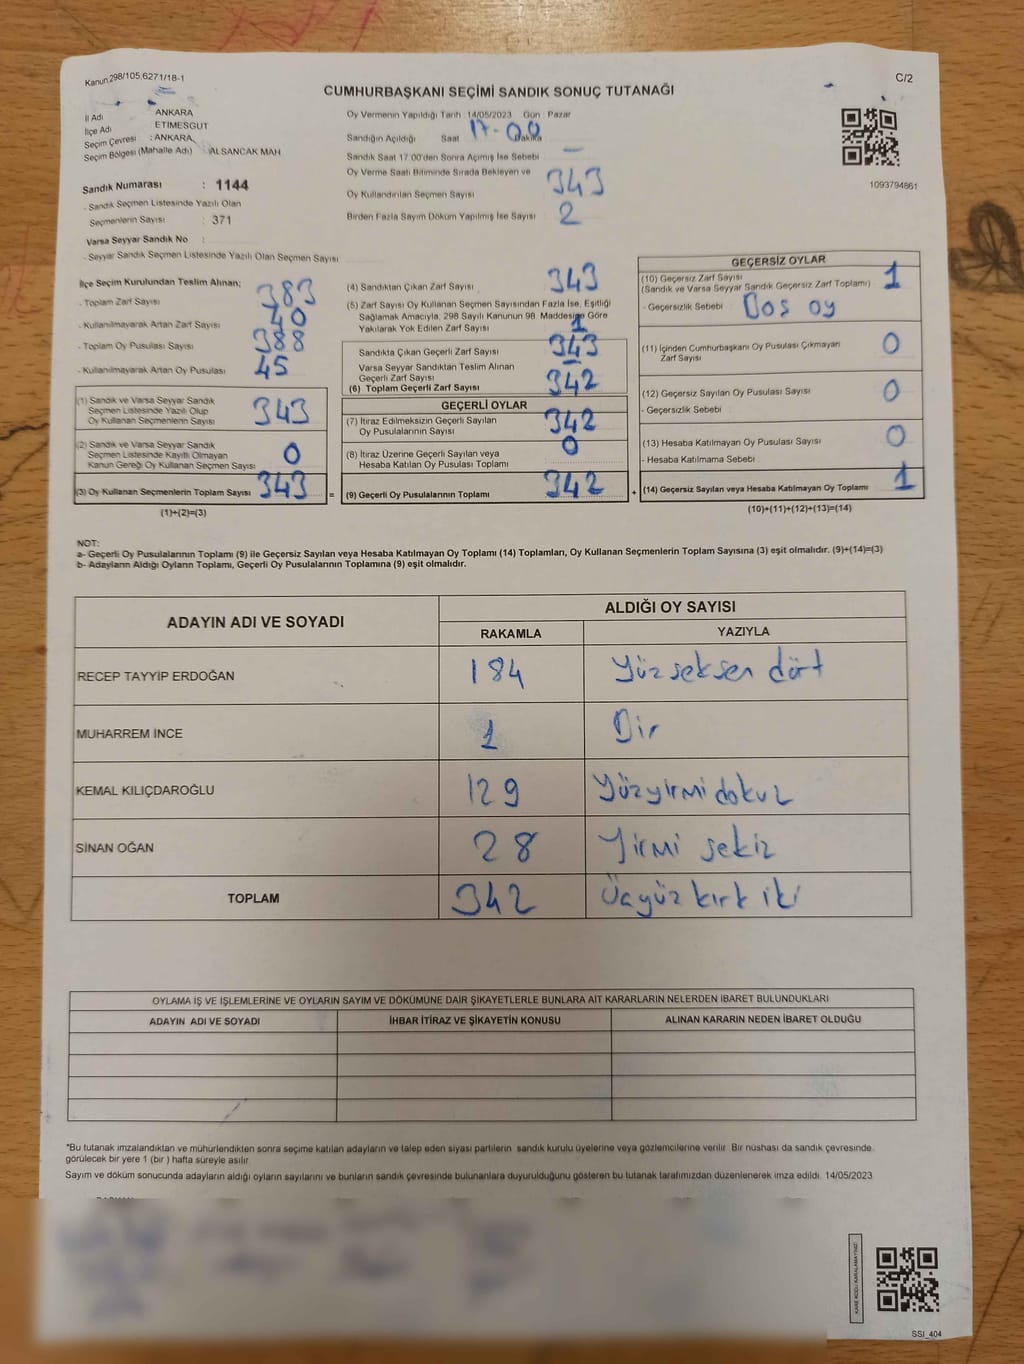 Kanun 298/105,6271/18-1
C/2
CUMHURBAŞKANI SEÇİMİ SANDIK SONUÇ TUTANAĞI
İl Adı ANKARA
İlçe Adı ETIMESGUT
Seçim Çevresi : ANKARA
Seçim Bölgesi (Mahalle Adı) ALSANCAK MAH
Sandık Numarası : 1144
- Sandık Seçmen Listesinde Yazılı Olan
Seçmenlerin Sayısı : 371
Varsa Seyyar Sandık No :
- Seyyar Sandık Seçmen Listesinde Yazılı Olan Seçmen Sayısı
Oy Vermenin Yapıldığı Tarih : 14/05/2023 Gün : Pazar
Sandığın Açıldığı Saat 17-00 Dakika
Sandık Saat 17.00'den Sonra Açımış İse Sebebi —
Oy Verme Saati Bitiminde Sırada Bekleyen ve
Oy Kullandırılan Seçmen Sayısı 343
Birden Fazla Sayım Döküm Yapılmış İse Sayısı 2
1093794861
İlçe Seçim Kurulundan Teslim Alınan;
- Toplam Zarf Sayısı 383
- Kullanılmayarak Artan Zarf Sayısı 40
- Toplam Oy Pusulası Sayısı 388
- Kullanılmayarak Artan Oy Pusulası 45
(1) Sandık ve Varsa Seyyar Sandık
Seçmen Listesinde Yazılı Olup
Oy Kullanan Seçmenlerin Sayısı 343
(2) Sandık ve Varsa Seyyar Sandık
Seçmen Listesinde Kayıtlı Olmayan
Kanun Gereği Oy Kullanan Seçmen Sayısı 0
(3) Oy Kullanan Seçmenlerin Toplam Sayısı 343
=
(1)+(2)=(3)
(4) Sandıktan Çıkan Zarf Sayısı 343
(5) Zarf Sayısı Oy Kullanan Seçmen Sayısından Fazla İse, Eşitliği
Sağlamak Amacıyla, 298 Sayılı Kanunun 98. Maddesine Göre
Yakılarak Yok Edilen Zarf Sayısı 1
Sandıkta Çıkan Geçerli Zarf Sayısı 343
Varsa Seyyar Sandıktan Teslim Alınan
Geçerli Zarf Sayısı —
(6) Toplam Geçerli Zarf Sayısı 342
GEÇERLİ OYLAR
(7) İtiraz Edilmeksizin Geçerli Sayılan
Oy Pusulalarının Sayısı 342
(8) İtiraz Üzerine Geçerli Sayılan veya
Hesaba Katılan Oy Pusulası Toplamı 0
(9) Geçerli Oy Pusulalarının Toplamı 342
+
GEÇERSİZ OYLAR
(10) Geçersiz Zarf Sayısı
(Sandık ve Varsa Seyyar Sandık Geçersiz Zarf Toplamı) 1
- Geçersizlik Sebebi Boş oy
(11) İçinden Cumhurbaşkanı Oy Pusulası Çıkmayan
Zarf Sayısı 0
(12) Geçersiz Sayılan Oy Pusulası Sayısı 0
- Geçersizlik Sebebi
(13) Hesaba Katılmayan Oy Pusulası Sayısı 0
- Hesaba Katılmama Sebebi
(14) Geçersiz Sayılan veya Hesaba Katılmayan Oy Toplamı 1
(10)+(11)+(12)+(13)=(14)
NOT:
a- Geçerli Oy Pusulalarının Toplamı (9) ile Geçersiz Sayılan veya Hesaba Katılmayan Oy Toplamı (14) Toplamları, Oy Kullanan Seçmenlerin Toplam Sayısına (3) eşit olmalıdır. (9)+(14)=(3)
b- Adayların Aldığı Oyların Toplamı, Geçerli Oy Pusulalarının Toplamına (9) eşit olmalıdır.
ADAYIN ADI VE SOYADI
ALDIĞI OY SAYISI
RAKAMLA YAZIYLA
RECEP TAYYİP ERDOĞAN 184 Yüzseksen dört
MUHARREM İNCE 1 Bir
KEMAL KILIÇDAROĞLU 129 Yüzyirmi dokuz
SİNAN OĞAN 28 Yirmi sekiz
TOPLAM 342 Üçyüz kırk iki
OYLAMA İŞ VE İŞLEMLERİNE VE OYLARIN SAYIM VE DÖKÜMÜNE DAİR ŞİKAYETLERLE BUNLARA AİT KARARLARIN NELERDEN İBARET BULUNDUKLARI
ADAYIN ADI VE SOYADI İHBAR İTİRAZ VE ŞİKAYETİN KONUSU ALINAN KARARIN NEDEN İBARET OLDUĞU
*Bu tutanak imzalandıktan ve mühürlendikten sonra seçime katılan adayların ve talep eden siyasi partilerin sandık kurulu üyelerine veya gözlemcilerine verilir. Bir nüshası da sandık çevresinde
görülecek bir yere 1 (bir ) hafta süreyle asılır.
Sayım ve döküm sonucunda adayların aldığı oyların sayılarını ve bunların sandık çevresinde bulunanlara duyurulduğunu gösteren bu tutanak tarafımızdan düzenlenerek imza edildi. 14/05/2023
KARE KODU KARALAMAYINIZ!
SSI_404